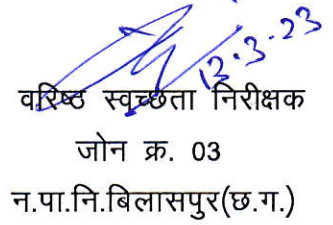 13.3.23
वरिष्ठ स्वच्छता निरीक्षक
जोन क्र. 03
न.पा.नि.बिलासपुर(छ.ग.)